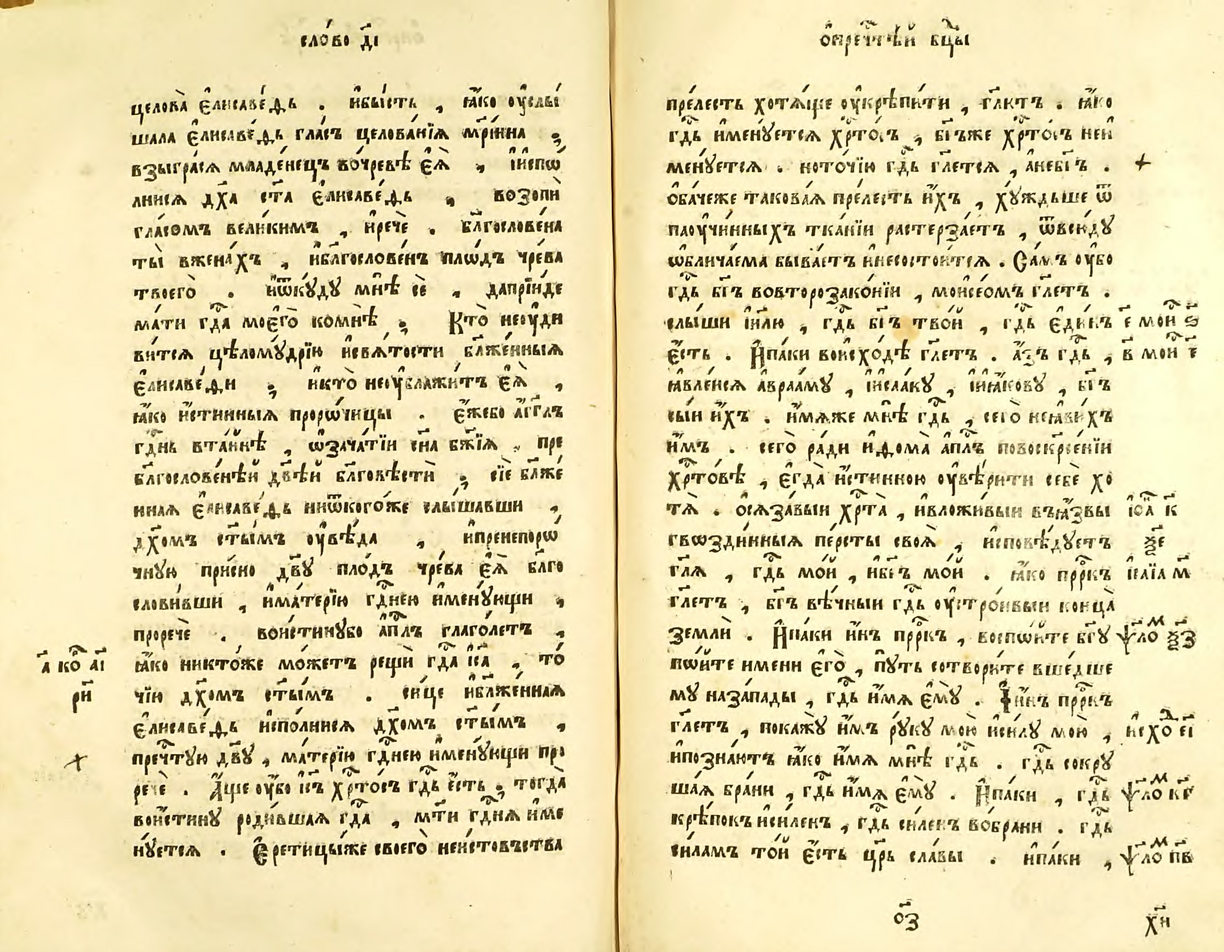 сло́во д҃і
целова̀ є҆лисаве́ѳь . и҆бы́сть , ꙗ҆́ко ѹ҆слы́
шала є҆лисаве́ѳь гла́съ целова́нїѧ мр҃іина ,
взыгра́сѧ младе́нецъ во́чревѣ є҆ѧ̀ , и҆и҆спо́
лнисѧ дх҃а ст҃а є҆лисаве́ѳь , возопѝ
гла́сомъ вели́кимъ , и҆речѐ . бл҃гослове́на
ты̀ вжена́хъ , и҆бл҃гослове́нъ пло́дъ чре́ва
твоегѡ̀ . и҆ѿкꙋ́дꙋ мнѣ̀ сѐ , дапрїи́де
ма́ти гд҃а моегѡ̀ комнѣ̀ ; Кто̀ неѹ҆ди
ви́тсѧ цѣломꙋ́дрїю и҆свѧ́тости бл҃же́нныѧ
є҆лисаве́ѳи ; и҆кто̀ неѹ҆блажи́тъ є҆ѧ̀ ,
ꙗ҆́ко и҆́стинныѧ проро́чицы . є҆́жебо а҆́гг҃лъ
гд҃нь вта́йнѣ , ѡ҆зача́тїи сн҃а бж҃їѧ , пре
бл҃гослове́нѣй дв҃ѣй бл҃говѣстѝ ; сїѐ бл҃же́
ннаѧ є҆лисаве́ѳь ниѿкогѡ́же слы́шавши ,
дх҃омъ ст҃ы́мъ ѹ҆вѣ́да , и҆пренепоро́
чнꙋю при́сно дв҃ꙋ пло́дъ чре́ва є҆ѧ̀ бл҃го
слови́вши , и҆ма́терїю гд҃нею и҆менꙋ́ющи ,
проречѐ . вои́стинꙋбо а҆п҃лъ глаго́летъ ,
а҃ ко҃ а҃і
ꙗ҆́ко никто́же мо́жетъ рещѝ гд҃а і҆с҃а , то́
р҃и
чїю дх҃омъ ст҃ы́мъ . си́це и҆бл҃же́ннаѧ
є҆лисаве́ѳь и҆спо́лнисѧ дх҃омъ ст҃ы́мъ ,
пречт҃ꙋю дв҃ꙋ , ма́терїю гд҃нею и҆менꙋ́ющи про
речѐ . А҆́ще ѹ҆́бо і҆с҃ъ хр҃то́съ гд҃ь є҆́сть , тогда̀
вои́стинꙋ роди́вшаѧ гд҃а , мт҃и гд҃нѧ и҆ме
нꙋ́етсѧ . Є҆ретицы́же своегѡ̀ неи́стовъства
ѡ҆пречт҃ѣй бц҃ы
пре́лесть хотѧ́ще ѹ҆крѣпи́ти , гл҃ютъ . ꙗ҆́ко
гд҃ь и҆менꙋ́етсѧ хр҃то́съ , бг҃ъже хр҃то́съ неи
менꙋ́етсѧ . ното́чїю гд҃ь гл҃етсѧ , а҆небг҃ъ .
ѻ҆ба́чеже такова́ѧ пре́лесть и҆́хъ , хꙋ́ждьше ѿ
паѹ́чинныхъ тка́нїи растерза́етъ , ѿвсю́дꙋ
ѡ҆блича́ема быва́етъ и҆несостои́тсѧ . Са́мъ ѹ҆́бо
гд҃ь бг҃ъ вовторозако́нїи , моисе́омъ гл҃етъ .
слы́ши і҆и҃лю , гд҃ь бг҃ъ тво́й , гд҃ь є҆ди́нъ
є҃ мои ѕ҃
є҆́сть . И҆па́ки воисхо́дѣ гл҃етъ . а҆́зъ гд҃ь ,
в҃ мои ѕ҃
ꙗ҆вле́йсѧ а҆враа́мꙋ , і҆исаа́кꙋ , і҆иа́ковꙋ , бг҃ъ
сы́й и҆́хъ . и҆́мѧже мнѣ̀ гд҃ь , сегѡ̀ неꙗ҆ви́хъ
и҆́мъ . сегѡ̀ ра́ди и҆ѳома̀ а҆п҃лъ повоскр҃се́нїи
хр҃то́вѣ , є҆гда̀ и҆́стинною ѹ҆вѣ́рити себѐ хо
тѧ̀ . ѻ҆сѧза́вый хр҃та̀ , и҆вложи́вый въꙗ҆́звы
і҆ѡ҃а к҃
гвозди́нныѧ пе́рсты своѧ̀ , и҆сповѣ́дꙋетъ
ѯ҃е
гл҃ѧ , гд҃ь мо́й , и҆бг҃ъ мо́й . ꙗ҆́ко пр҃ркъ
и҆са́їа м҃
гл҃етъ , бг҃ъ вѣ́чный гд҃ь ѹ҆стро́ивый конца̀
землѝ . И҆па́ки и҆́нъ пр҃ркъ , воспо́йте бг҃ꙋ
ѱло́м ѯ҃з
по́йте и́мени є҆гѡ̀ , пꙋ́ть сотвори́те вше́дше
мꙋ наза́пады , гд҃ь и҆́мѧ є҆мꙋ̀ . И҆и҆́нъ пр҃ркъ
гл҃етъ , покажꙋ̀ и҆̀мъ рꙋ́кꙋ мою̀ и҆си́лꙋ мою̀ ,
и҆схо́д є҃і
и҆позна́ютъ ꙗ҆́ко и҆́мѧ мнѣ̀ гд҃ь . гд҃ь сокрꙋ
ша́ѧ бра́ни , гд҃ь и҆́мѧ є҆мꙋ̀ . И҆па́ки , гд҃ь
ѱло́м к҃г
крѣ́покъ и҆си́ленъ , гд҃ь си́ленъ вобра́ни . гд҃ь
си́ламъ то́й є҆́сть цр҃ь сла́вы . и҆па́ки ,
ѱло́м п҃в
о҃з
х҃и